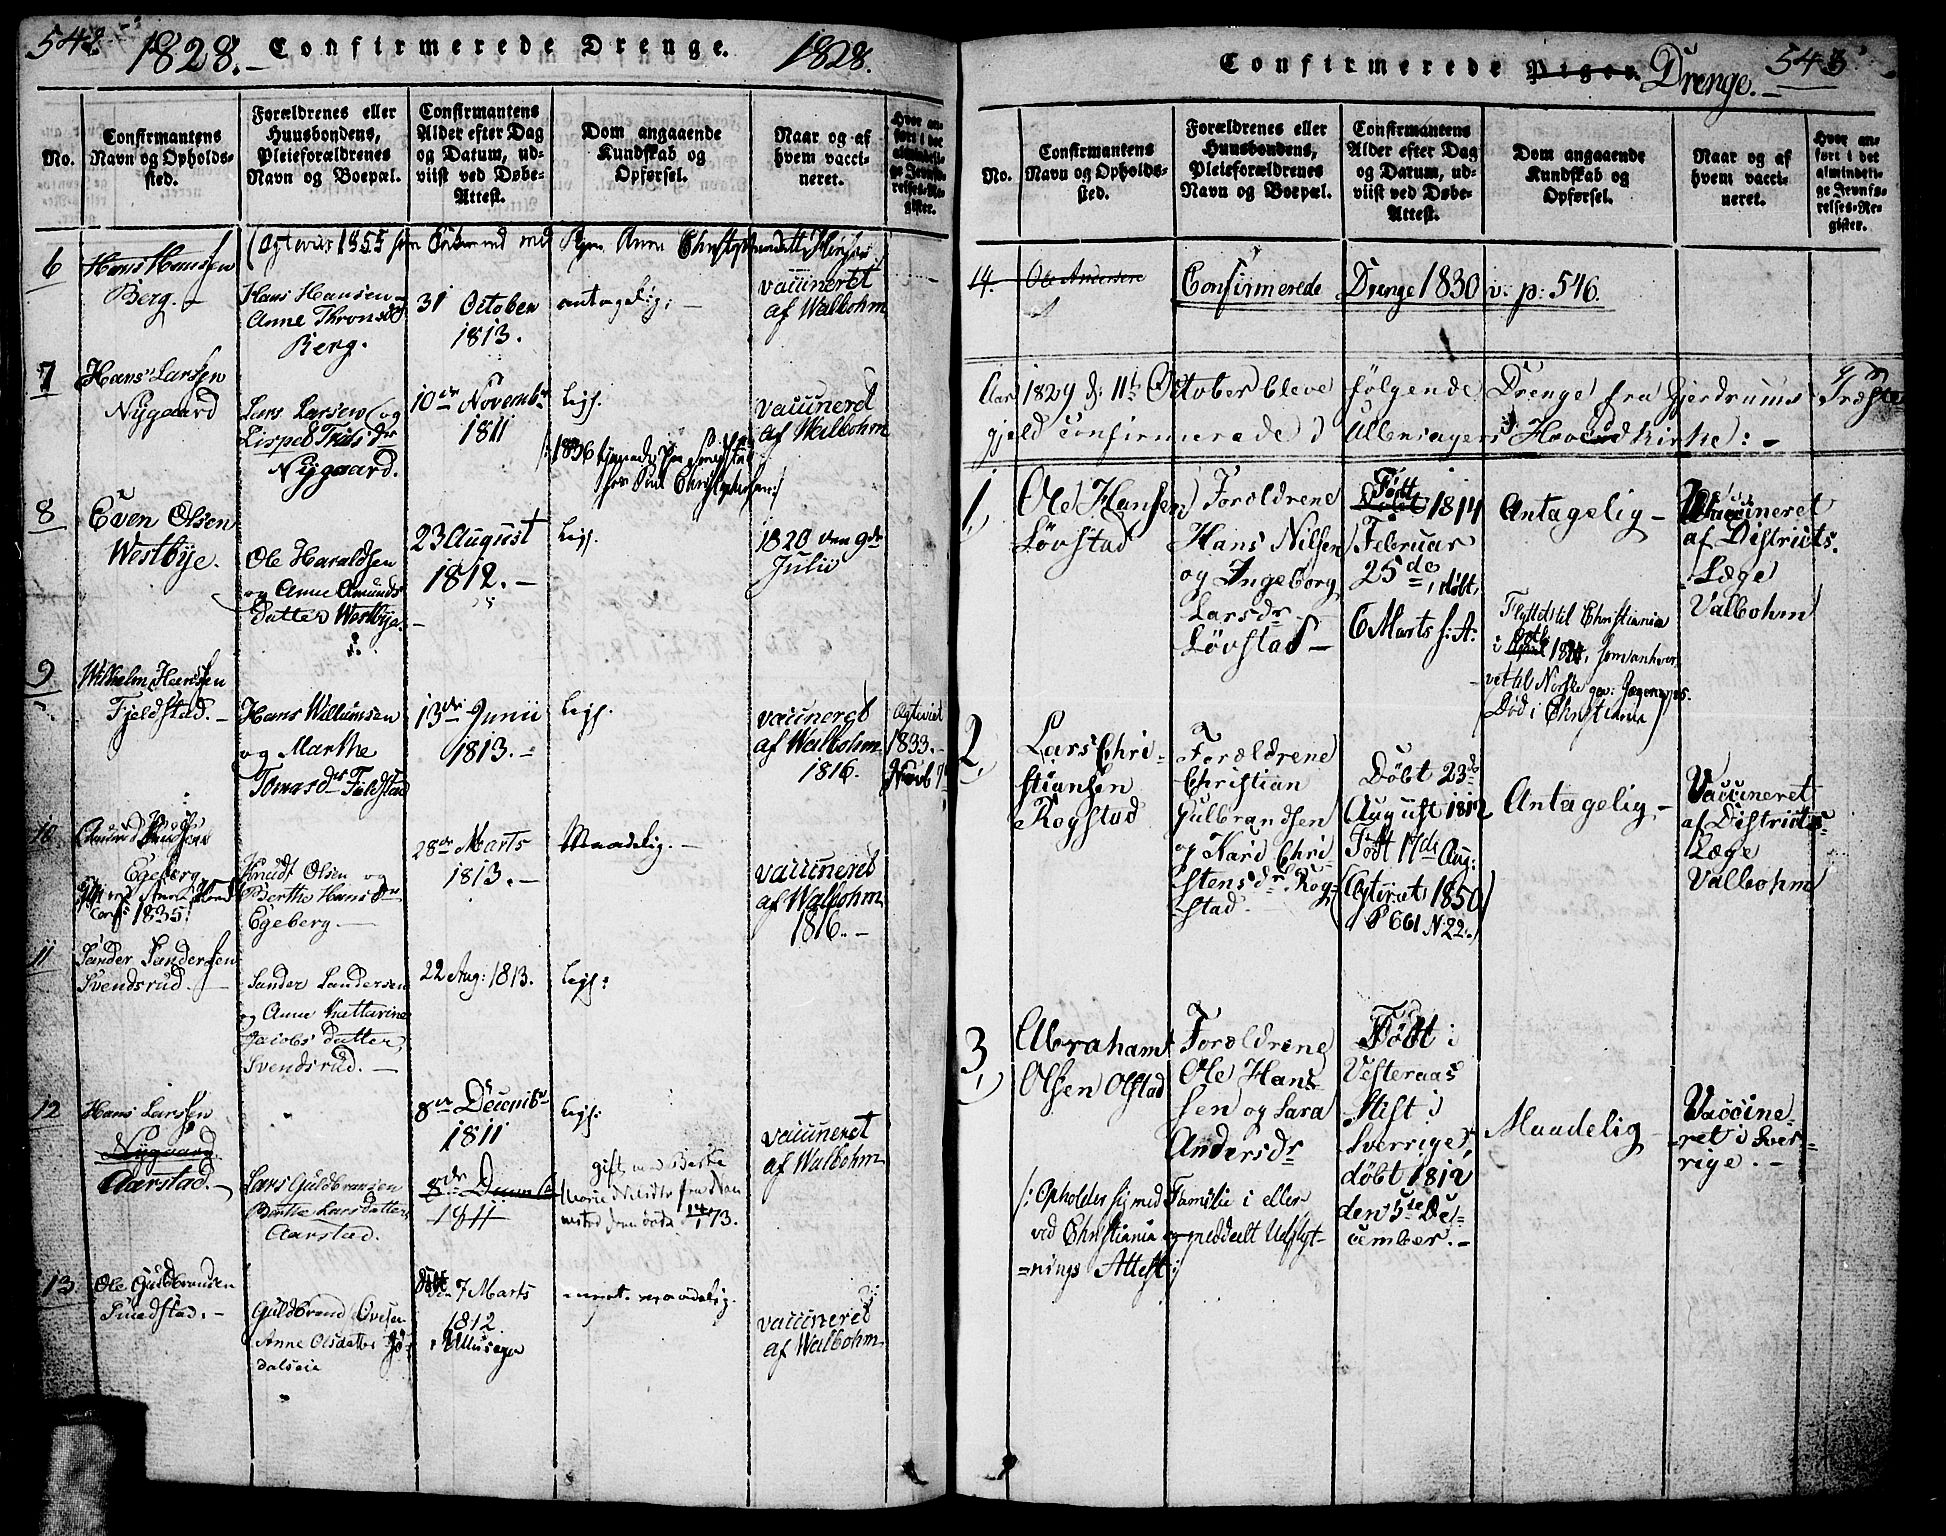 542.
1828. Confirmerede Drenge. 1828.
No.
Confirmantens
Navn og Opholds-
sted.
Forældrenes eller
Huusbondens,
Pleieforældrenes
Navn og Boepæl.
Confirmantens
Alder efter Dag
og Datum, ud-
viist ved Døbe-
Attest.
Dom angaaende
Kundskab og
Opførsel.
Naar og af
hvem vacci-
neret.
Hvor an-
ført i det
almindeli-
ge Jevnfø-
relses-Re-
gister.
(Agteviet 1855 som Enkemand med Pigen Anne
6
Hans Hansen
Berg. -
Hans Hansen
Anne Thronsdr
Berg.
31 October
1813.
antagelig.
vaccineret
af Walbohm
7
Hans Larsen
Nygaard
Lars Larsen og
Lispet Trulsdr
Nygaard.
10de Novembr
1811
Ligs.
1836 tjenende paa Smestad
hos Poul Christophersen:/
vaccineret
af Walbohm
8
Even Olsen
Westbye.
Ole Haraldsen
og Anne Amunds
datter Westbye.
23 August
1812. -
Ligs.
1820 den 9de
Julii
9
Wilhelm Hansen
Fjeldstad. -
Hans Willumsen
og Marthe
Tomasdr Fieldstad
13de Junii
1813. -
Ligs.
vaccineret
af Walbohm
1816.
Agteviet
1833. -
10
Amund Knudsen
Egeberg
1835.
Knudt Olsen og
Berthe Hansdtr
Egeberg. -
28de Marts
1813. -
Maadelig. -
vaccineret
af Walbohm
1816. -
11
Sander Sandersen
Svendsrud. -
Sander Sandersen
og Anne Kattarine
Jacobs datter,
Svendsrud. -
22 Aug: 1813.
Ligs:
12
Hans Larsen
Nygaard
Aarstad. -
Lars Guldbransen
Berthe Larsdatter
Aarstad.
8de Decembr
1811
8de Decemb
1811
Ligs.
gift med Berthe
Marie Nilsdtr fra Nan
nestad 1873.
vaccineret
af Walbohm
13
Ole Guldbrandsen
Smedstad. -
Guldbrand Ovesen
Anne Olsdatter
dalseie
Døbt
den 7 Marts
1812
i Ullensager
meget maadelig.
vaccineret
af Walbohm
Confirmerede Piger. Drenge. -
543
No.
Confirmantens
Navn og Opholds-
sted.
Forældrenes eller
Huusbondens,
Pleieforældrenes
Navn og Boepæl.
Confirmantens
Alder efter Dag
og Datum, ud-
viist ved Døbe-
Attest.
Dom angaaende
Kundskab og
Opførsel.
Naar og af
hvem vacci-
neret.
Hvor an-
ført i det
almindeli-
ge Jevnfø-
relses-Re-
gister.
14. Ole Andersen
Confirmerede Drenge 1830 v: p: 546.
Aar 1829 d: 11te October bleve følgende Drenge fra Gjerdrums Præste
gjeld confirmerede i Ullensagers Hovedkirke: -
1,
Ole Hansen
Løvstad
Forældrene
Hans Nilsen
og Ingeborg
Larsdr
Løvstad -
Født
1814
Februar
25de, døbt,
6 Marts s: A:
Antagelig -
Flyttet til Christiania
i 18, som anhver
vet til Norske gev: Jægercorps.
Død i Christiania
Vaccineret
af Districts-
Læge
Valbohm
2,
Lars Chri-
stiansen
Rogstad
Forældrene
Christian
Gulbrandsen
og Kari Chri
stensdr Rog-
stad. -
Døbt 23de
August 1812
Født 17de Aug:
(Agteviet 1850
P 661 N: 22.)
Antagelig -
Vaccineret
af Districts-
Læge
Valbohm
3,
Abraham
Olsen Olstad
Forældrene
Ole Han-
sen og Sara
Andersdr
/: Opholder sig med Familie i eller
ved Christiania og meddeelt Udflyt-
-nings Attest :/
Født i
Vesteraas
Stift i
Sverrige,
døbt 1812
den 5te De-
cember. -
Maadelig -
Vaccine-
ret i Sver-
rige. -